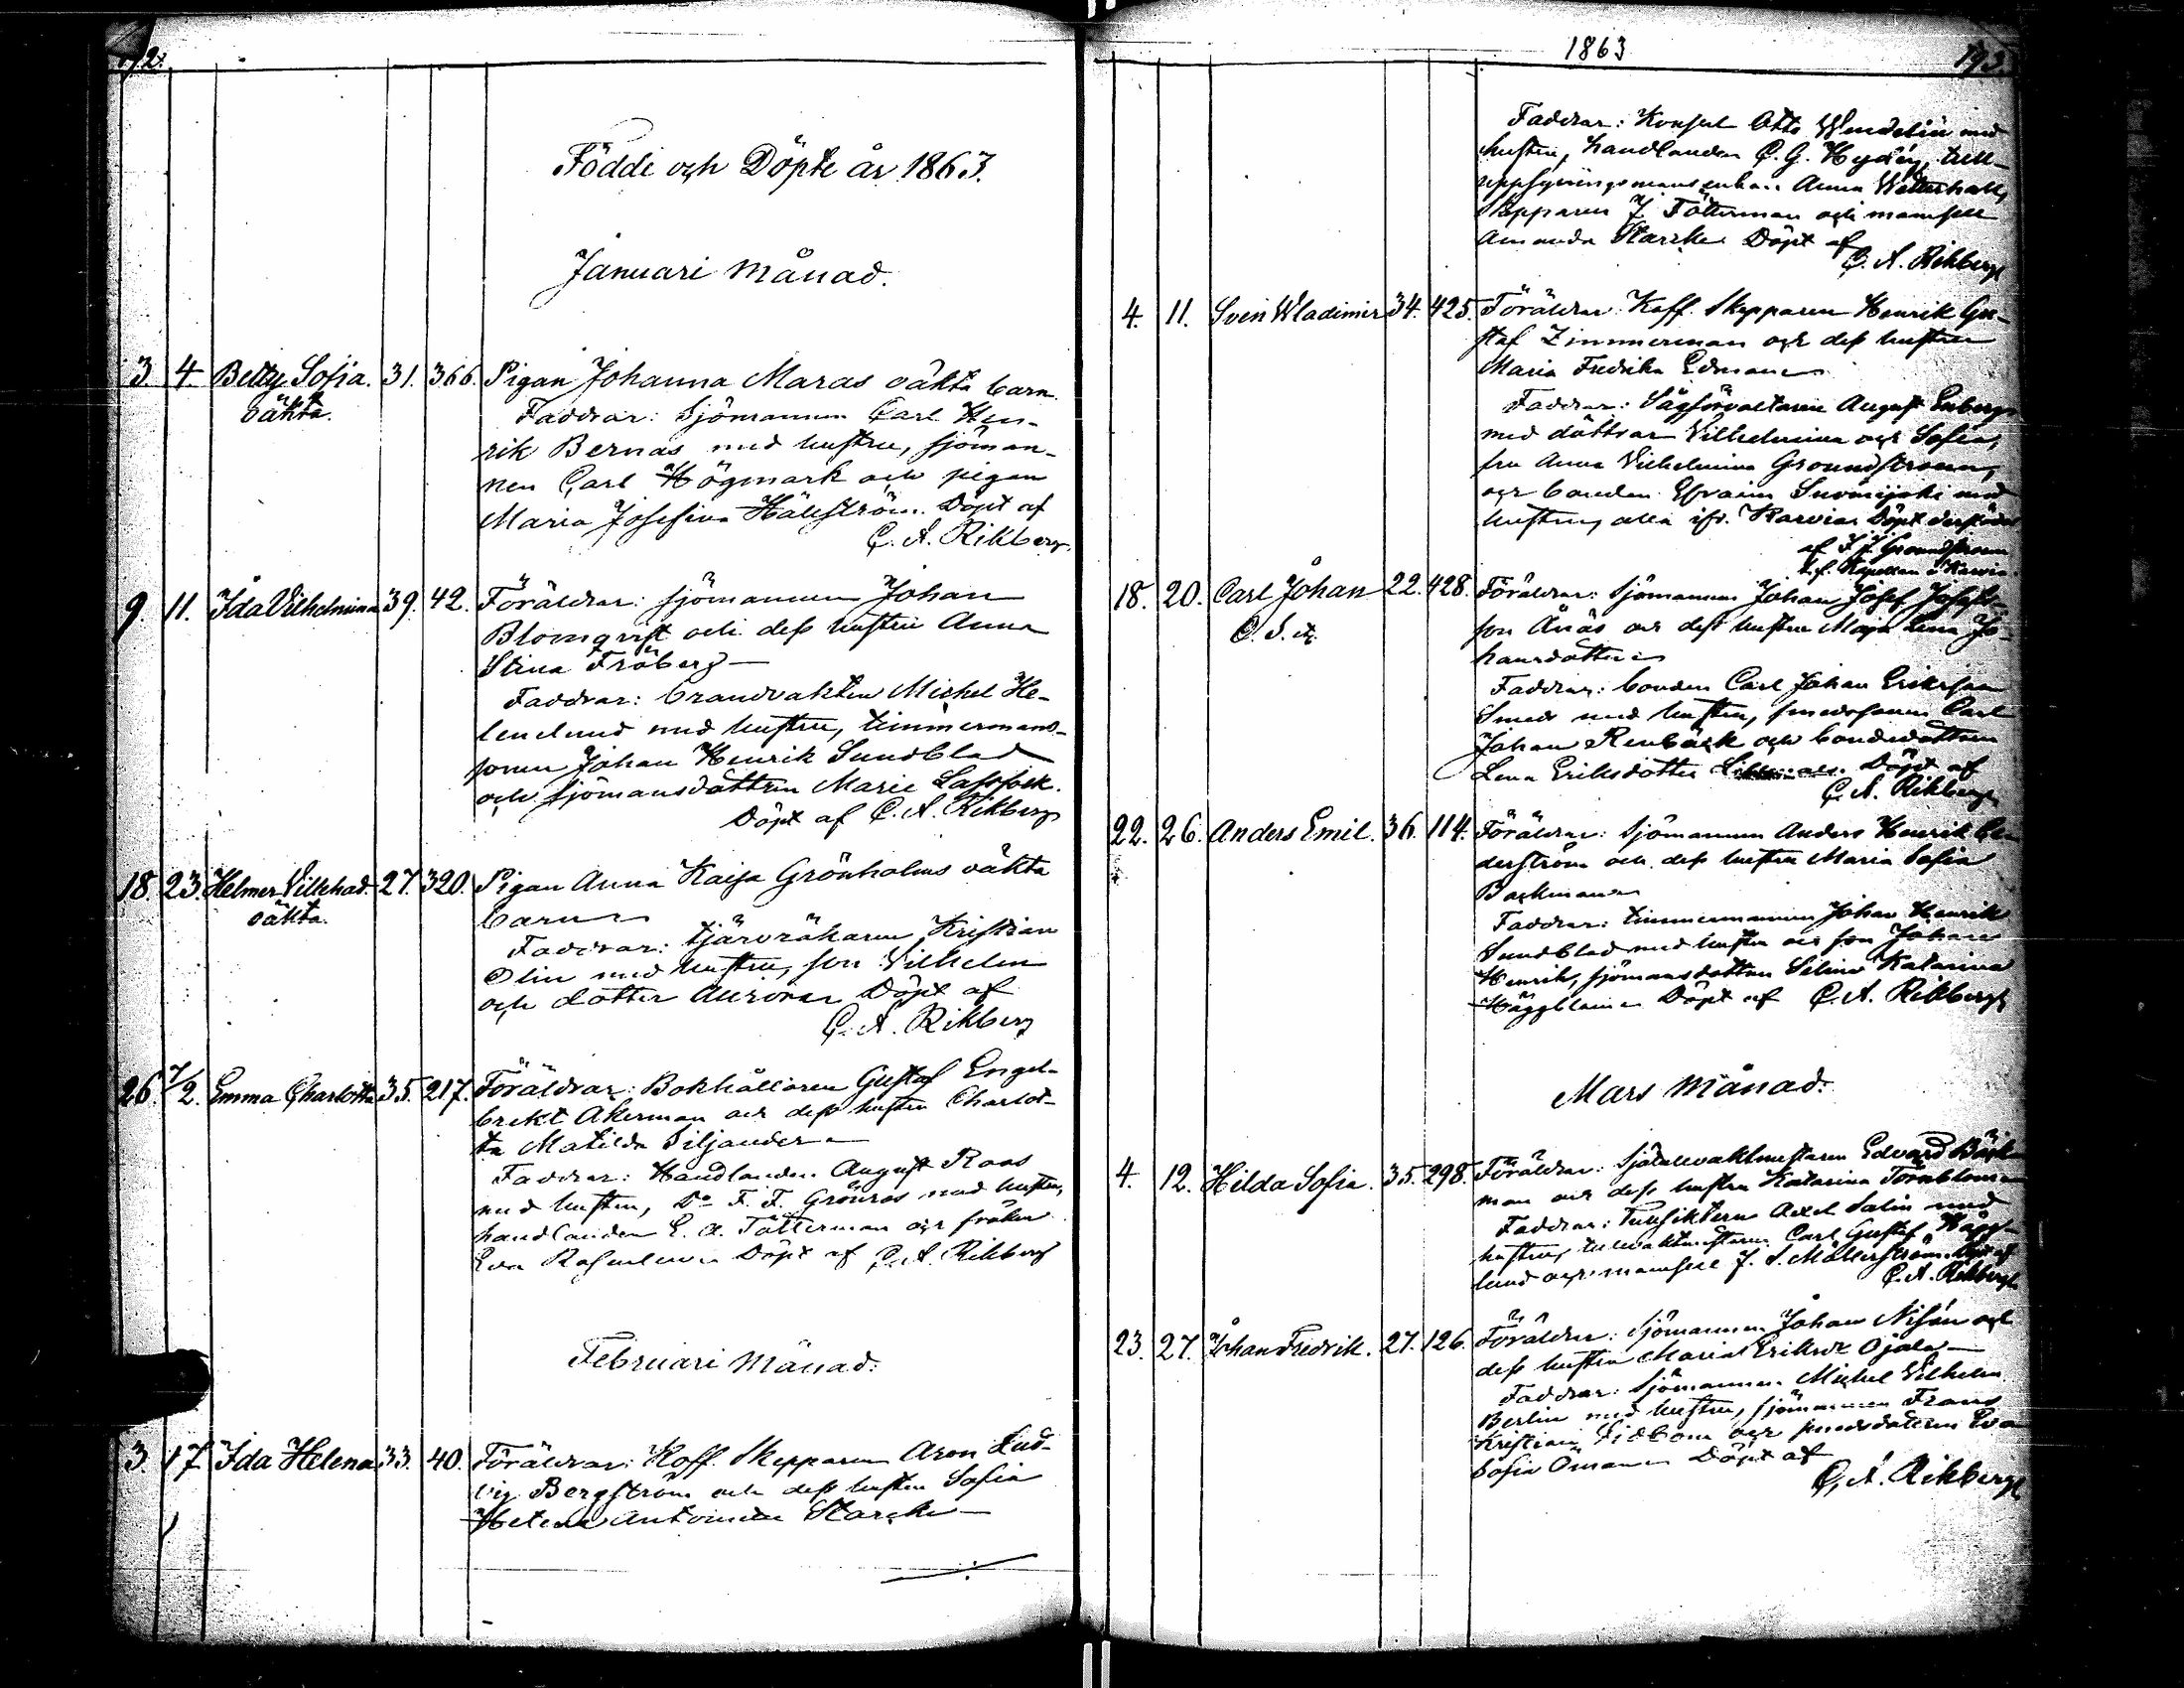 192.
Födde och Döpte år 1863.
Januari Månad.
3. 4. Betty Sofia. 31. 366. Pigan Johanna Maras oäkta barn
oäkta. Faddrar: Sjömannen Carl Hen-
rik Bernas med hustru, sjöman-
nen Carl Högmark och pigan
Maria Josefina Hällström. Döpt af
C. A. Rikberg
9. 11. Ida Vilhelmina 39. 42. Föräldrar: sjömannen Johan
Blomqvist och dess hustru Anna
Stina Fröberg
Faddrar: brandvakten Michel He-
lenelund med hustru, timmermans-
sonen Johan Henrik Sundblad
och sjömansdottren Marie Lassfolk.
Döpt af C. A. Rikberg
18. 23. Helmer Villehad. 27. 320. Pigan Anna Kaisa Grönholms oäkta
oäkta. barn
Faddrar: tjärvräkaren Kristian
Olin med hustru, son Vilhelm
och dotter Aurora Döpt af
C. A. Rikberg
26. 7/2. Emma Charlotta 35. 217. Föräldrar: Bokhållaren Gustaf Engel-
brekt Åkerman och dess hustru Charlot-
ta Matilda Siljander
Faddrar: Handlanden August Roos
med hustru, Do F. F. Grönros med hustru,
handlanden E. A. Tötterman och fröken
Eva Döpt af C. A. Rikberg
Februari Månad.
3. 17 Ida Helena 33. 40. Föräldrar: Koff. Skepparen Aron Lud-
vig Bergström och dess hustru Sofia
Helena Antoinette Starcke
1863
193.
Faddrar: Konsul Otto Wendelin med
hustru, handlanden C. G. Hydén, tull-
uppsyningsmans enkan Anna Wetterhall,
Skepparen J Tötterman och mamsell
Amanda Starcke Döpt af
C. A. Rikberg
4. 11. Sven Wladimir 34. 425. Föräldrar: Koff. Skepparen Henrik Gu-
staf Zimmerman och dess hustru
Maria Fredrika Edman
Faddrar: Sågförvaltaren August Enberg
med döttrar Vilhelmina och Sofia,
fru Anna Vilhelmina Groundstroem,
och bonden Efraim Suomijoki med
hustru, alla ifr. Karvia. Döpt derstädes
af F J Groundstroem
t.f. Kapellan i Karvia.
18. 20. Carl Johan 22. 428. Föräldrar: Sjömannen Johan Josef Josefs-
son Ånäs och dess hustru Maja Lena Jo-
hansdotter
Faddrar: bonden Carl Johan Eriksson
Smeds med hustru, smedssonen Carl
Johan Renbäck och bondedottren
Lena Eriksdotter Döpt af
C. A. Rikberg
22. 26. Anders Emil. 36. 114. Föräldrar: Sjömannen Anders Henrik Ce-
derström och dess hustru Maria Sofia
Backman
Faddrar: timmermannen Johan Henrik
Sundblad med hustru och son Johan
Henrik, sjömansdottren Selina Katarina
Häggblom Döpt af C. A. Rikberg
Mars Månad.
4. 12. Hilda Sofia. 35. 298. Föräldrar: Sjötullvaktmästaren Edvard Bäck-
man och dess hustru Katarina Törnblom
Faddrar: Axel Salin med
hustru, tullvaktmästaren Carl Gustaf Hägg-
lund och mamsell J. S. Möllerström. Döpt af
C. A. Rikberg
23. 27. Johan Fredrik. 27. 126. Föräldrar: Sjömannen Johan Nisén och
dess hustru Maria Ojala
Faddrar: Sjömannen Michel Vilhelm
Berlin med hustru, sjömannen Frans
Kristian Sidbom och Eva
Sofia Öman Döpt af
C. A. Rikberg